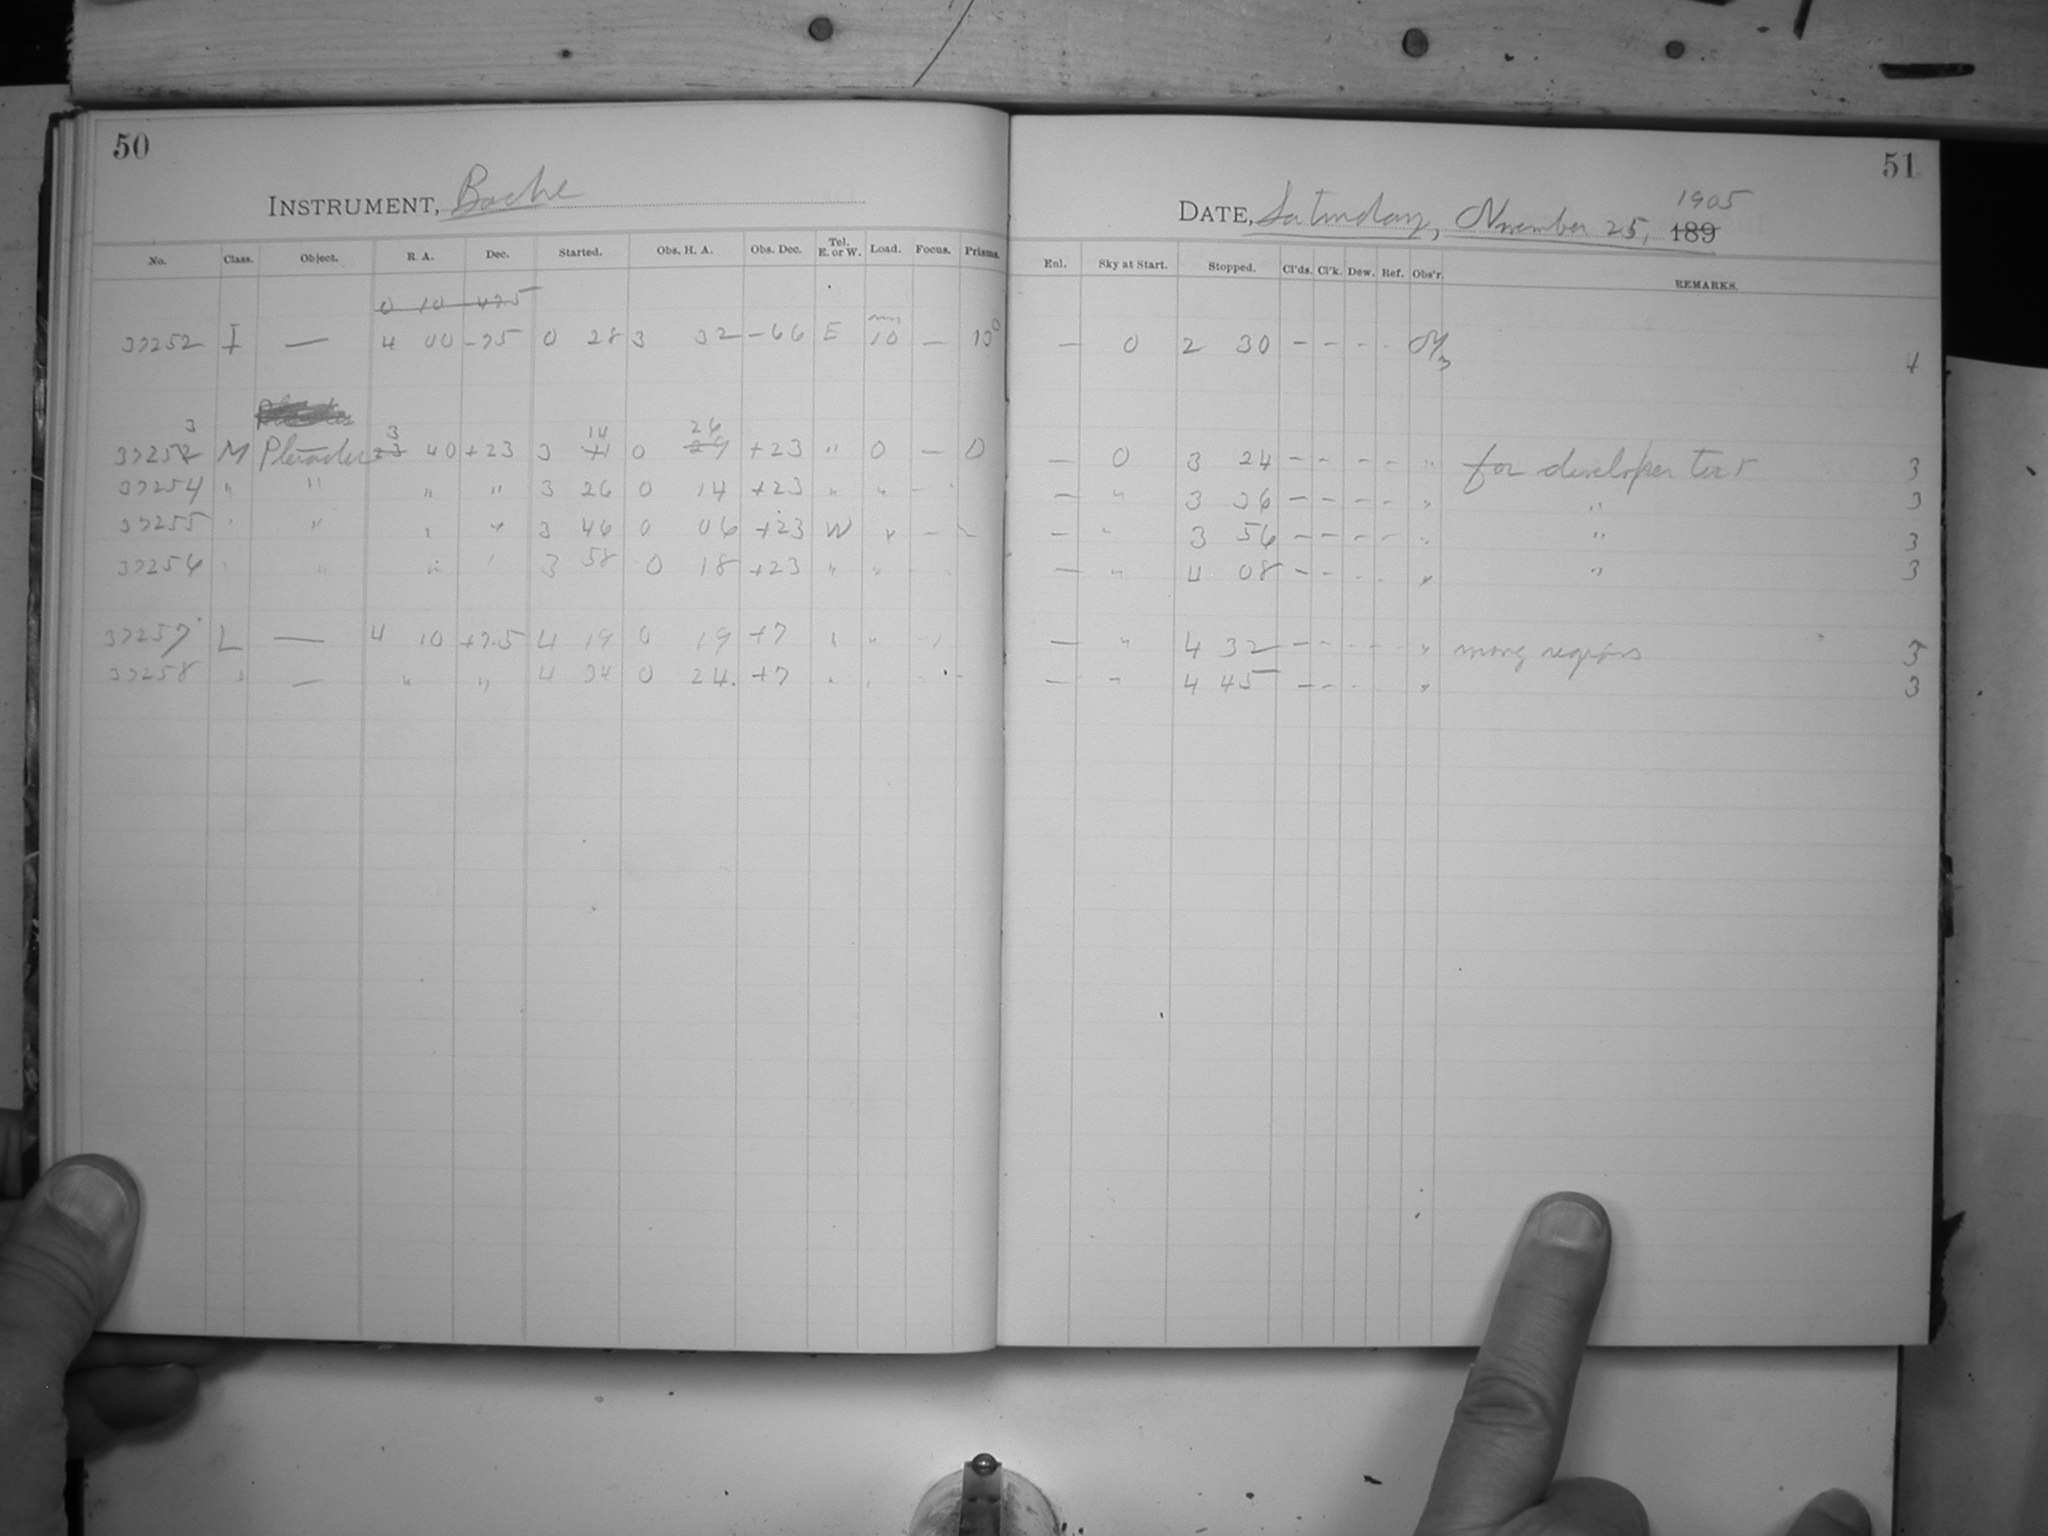 50
INSTRUMENT, Bache
No. Class. Object. R. A. Dec. Started. Obs. H. A. Obs. Dec. Tel. E. or W. Load. Focus. Prisms.
0 10 -47.5
37252 I — 4 00 -75 0 28 3 32 -66 E 10 — 10°
3 3 14 26
37252 M Pleiades 23 40 +23 3 11 0 29 +23 " 0 — 0
37254 " " " " 3 26 0 14 +23 " " - "
37255 " " " " 3 46 0 06 +23 W " - "
37256 " " " " 3 58 0 18 +23 " " - "
37257 L — 4 10 +7.5 4 19 0 19 +7 " " - "
37258 " — " " 4 34 0 24 +7 " " - "
51
1905
DATE, Saturday, November 25, 189
Enl. Sky at Start. Stopped. Cl'ds. Cl'k. Dew. Ref. Obs'r. REMARKS.
— 0 2 30 - - - - 4
— 0 3 24 - - - - " for developer test 3
— " 3 36 - - - - " " 3
— " 3 56 - - - - " " 3
— " 4 08 - - - - " " 3
— " 4 32 - - - - " wrong regions 3
— " 4 45 - - - - " 3